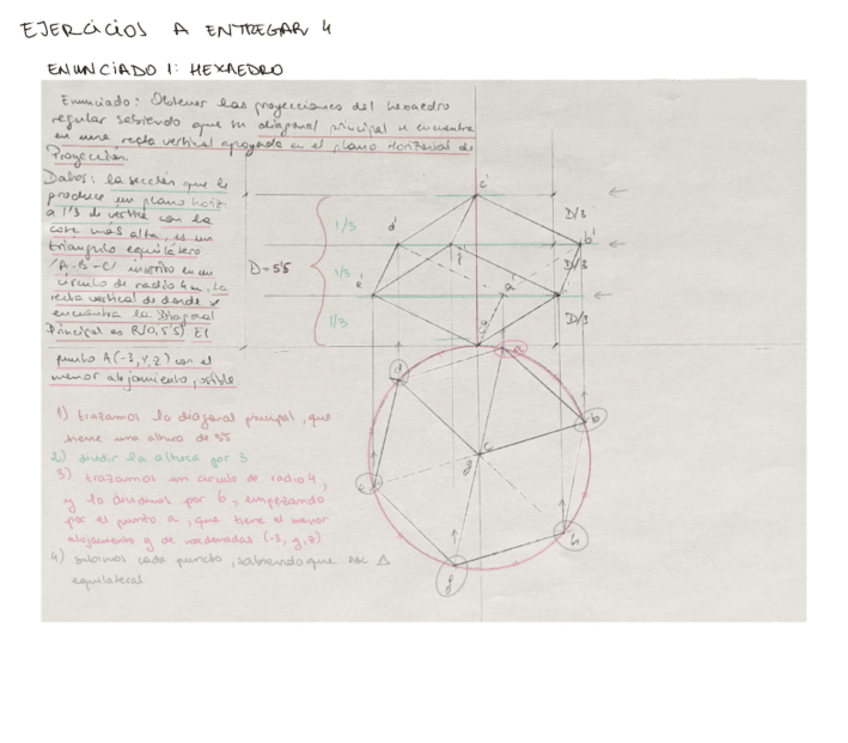 EJERCICIOS A ENTREGAR 4
ENUNCIADO 1: HEXAEDRO
Enunciado: Obtener las proyecciones del hexaedro
regular sabiendo que su diagonal principal se encuentra
en una recta vertical apoyada en el plano Horizontal de
Proyección.
Datos: la sección que le
produce un plano horiz.
a 1/3 de vertice con la
cota más alta, es un
triangulo equilátero
(A-B-C) inscrito en un
círculo de radio 4m. La
recta vertical de donde se
encuentra la Diagonal
Principal es R(0,5'5) El
punto A(-3,Y,Z) con el
menor alejamiento posible
1) trazamos la diagonal principal, que
tiene una altura de 55
2) dividir la altura por 3
3) trazamos un circulo de radio 4,
y lo dividimos por 6, empezando
por el punto a, que tiene el menor
alojamiento y de coordenadas (-3, y, z)
4) subimos cada puncto, sabiendo que
Δ
equilateral
D=55
1/3
1/3
1/3
D/3
D/3
D/3
c'
d'
f'
b'
e'
a'
g'
a
d
b
c
g
e
h
f